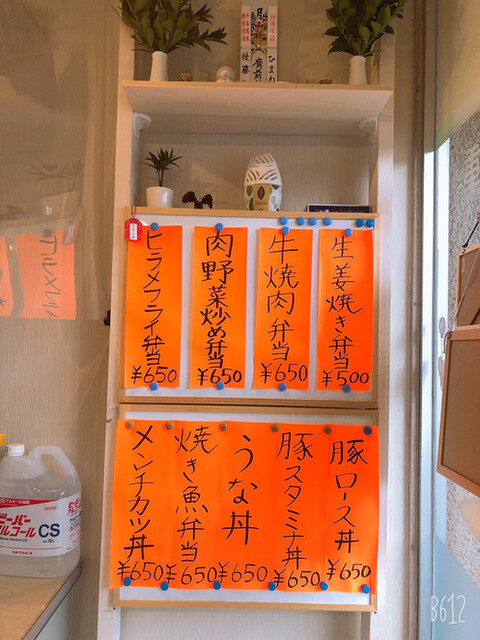 月山
ひまわ
後藤
生姜焼き弁当
¥500
牛焼肉弁当
¥650
肉野菜炒め弁当
¥650
ヒラメフライ弁当
¥650
豚ロース丼
¥650
豚スタミナ丼
¥650
うな丼
¥650
焼き魚弁当
¥650
メンチカツ丼
¥650
ーパー
ルコール CS
B612